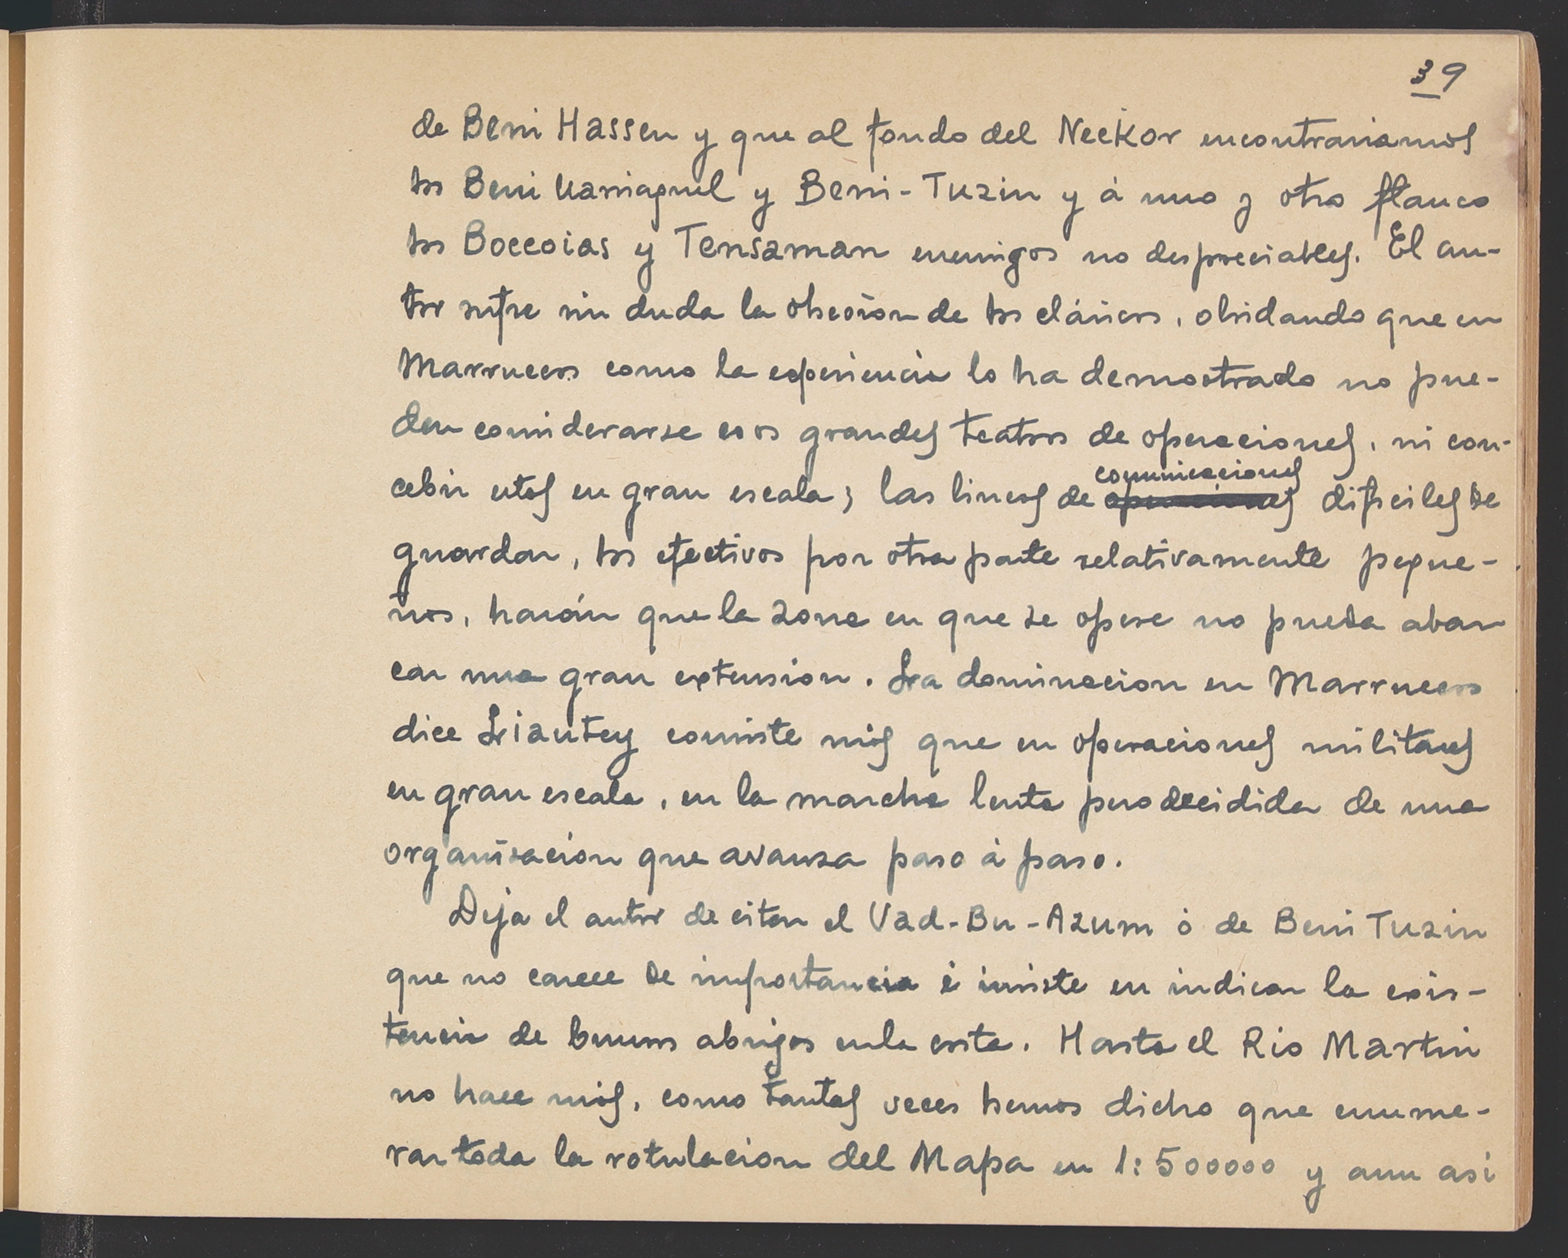 39
de Beni Hassen y que al fondo del Neckor encontrariamos
los Beni Uarriaguel y Beni-Tuzin y á uno y otro flanco
los Boccoias y Tensaman enemigos no despreciables. El au-
tor sufre sin duda la obsesion de los clásicos, olvidando que en
Marruecos como la experiencia lo ha demostrado no pue-
den considerarse esos grandes teatros de operaciones, ni con-
cebir estas en gran escala; las lineas de operaciones comunicaciones dificiles de
guardar, los efectivos por otra parte relativamente peque-
ños, harán que la zona en que se opere no pueda abar
car una gran extension. La dominacion en Marruecos
dice Liautey consiste más que en operaciones militares
en gran escala, en la marcha lenta pero decidida de una
organisacion que avanza paso á paso.
Deja el autor de citar el Vad-Bu-Azum ó de Beni Tuzin
que no carece de importancia é insiste en indicar la exis-
tencia de buenos abrigos en la costa. Hasta el Rio Martin
no hace más, como tantas veces hemos dicho que enume-
rar toda la rotulacion del Mapa en 1:500000 y aun asi